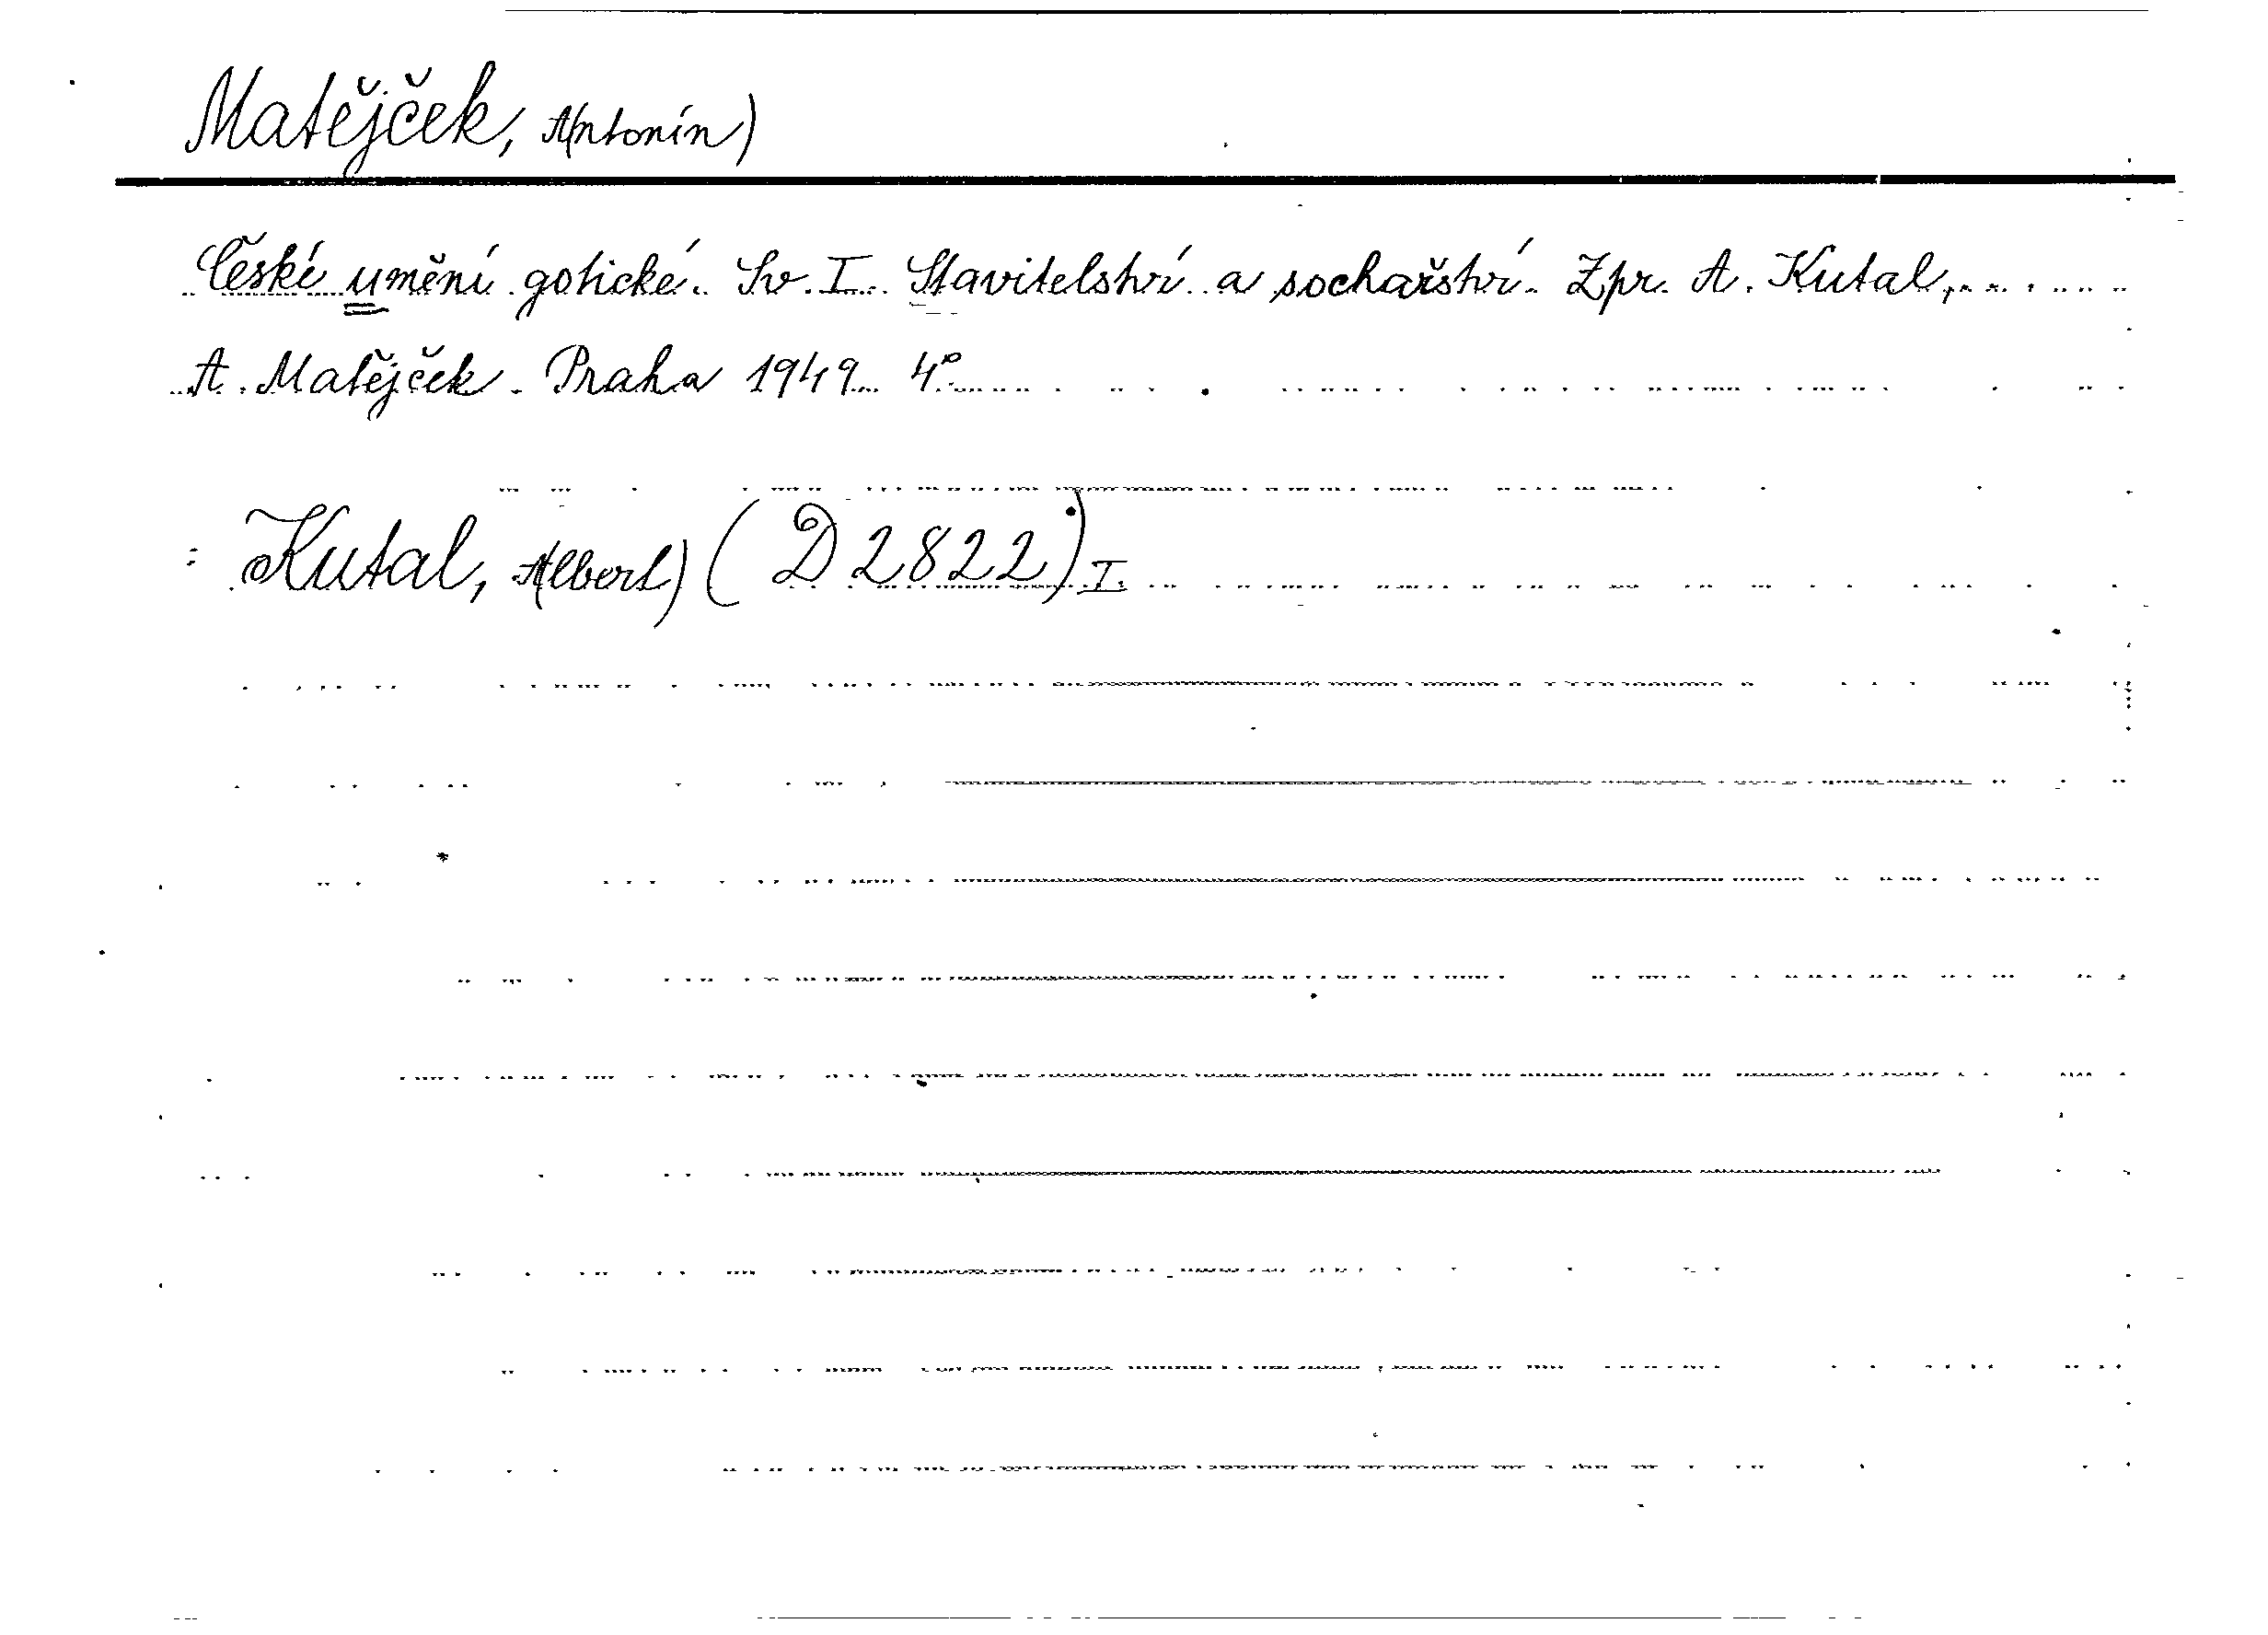 Matějček, A(ntonín)
České umění gotické. Sv. I. Stavitelství a sochařství. Zpr. A. Kutal,
A. Matějček. Praha 1949. 4°.
: Kutal, A(lbert) (D 2822) I.